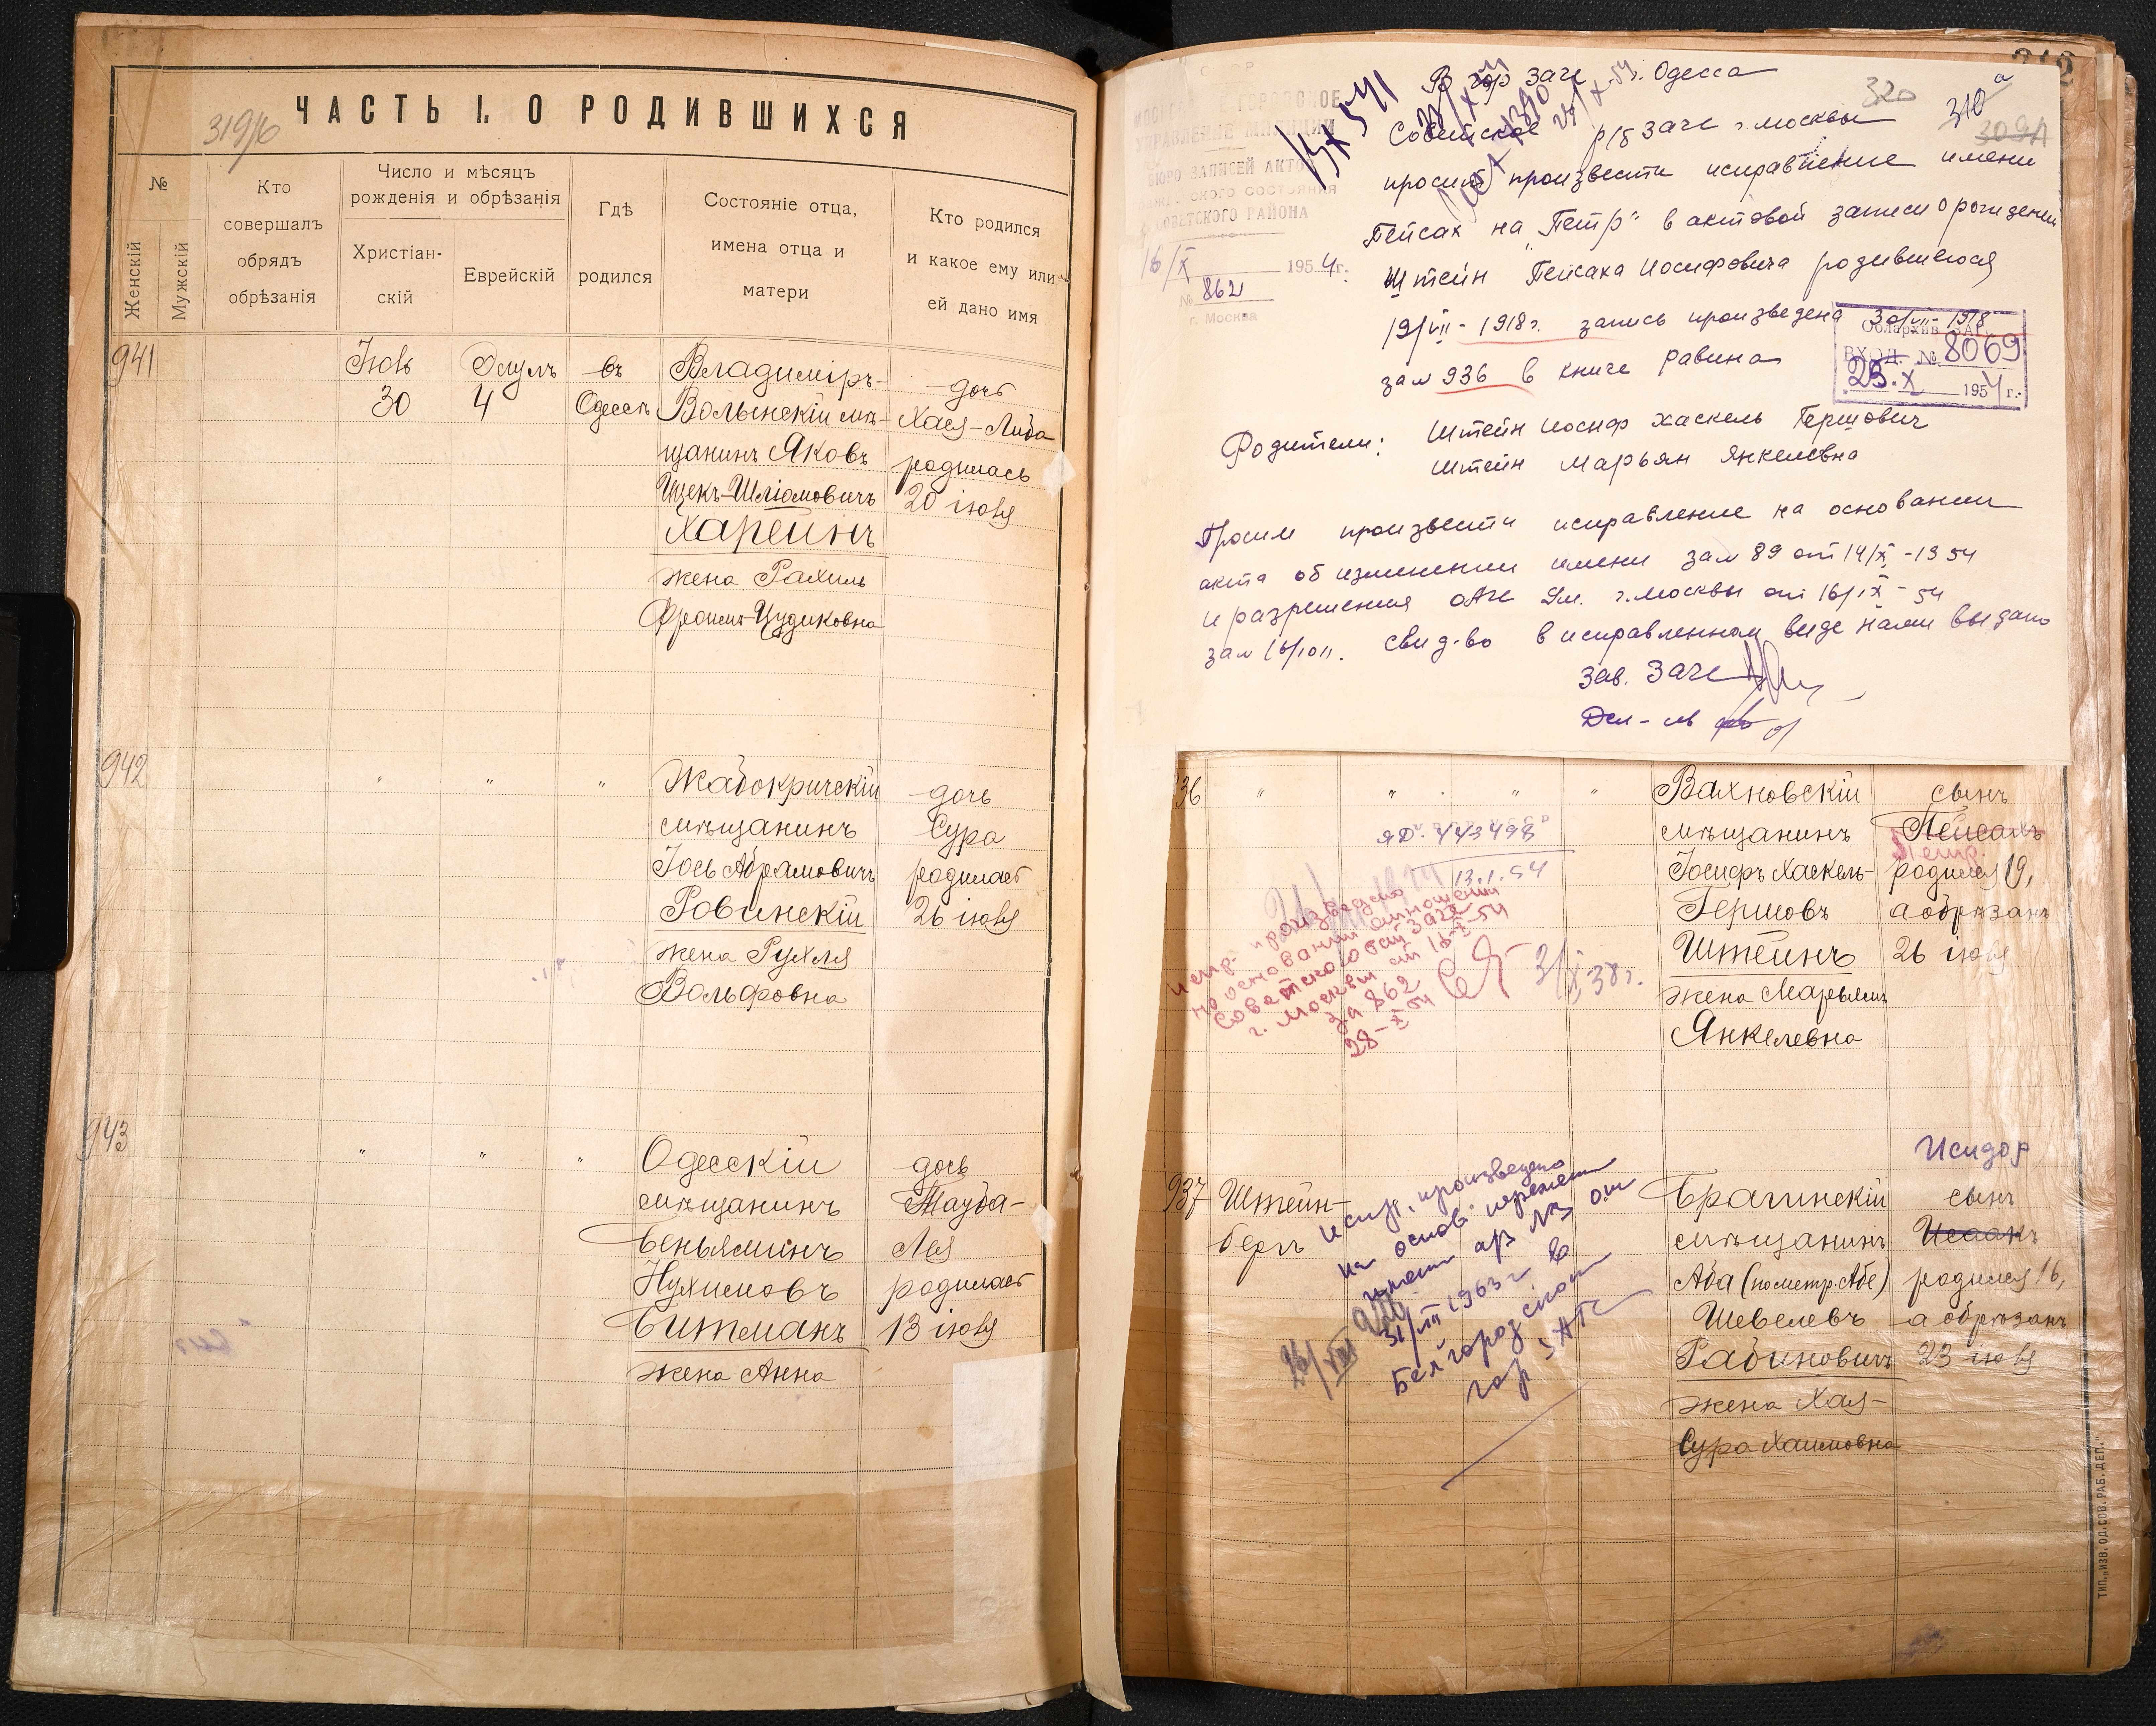 ЧАСТЬ I. О РОДИВШИХСЯ
319/6
№
Женскій
Мужскій
Кто
совершалъ
обрядъ
обрѣзанія
Число и мѣсяцъ
рожденія и обрѣзанія
Христіан-
скій
Еврейскій
Гдѣ
родился
Состояніе отца,
имена отца и
матери
Кто родился
и какое ему или
ей дано имя
941
Іюль
30
Элулъ
4
въ
Одессѣ
Владиміръ-
Волынскій мѣ-
щанинъ Яковъ
Ицекъ-Шліомовичъ
Харейнъ
жена Рахиль
Фроимъ-Иудиковна
дочь
Хая-Люба
родилась
20 іюля
942
" " "
Жабокричскій
мѣщанинъ
Іось Абрамовичъ
Ровинскій
жена Рухля
Вольфовна
дочь
Сура
родилась
26 іюля
943
" " "
Одесскій
мѣщанинъ
Беньяминъ
Нухимовъ
Битманъ
жена Анна
дочь
Тауба-
Лея
родилась
13 іюля
В гор ЗАГС г. Одесса
320
310 а
Советское р/б ЗАГС г. Москвы
просит произвести исправление имени
Пейсах на „Петр" в актовой записи о рождении
Штейн Пейсаха Иосифовича родившегося
19/VII - 1918 г. запись произведена 30/VII - 1918
за № 936 в книге равина
УПРАВЛЕНИЕ МИЛИЦИИ
БЮРО ЗАПИСЕЙ АКТОВ
СОВЕТСКОГО РАЙОНА
16/X 1954 г.
№ 862
г. Москва
Облархив ЗАГС
ВХОД. № 8069
25.X 1954 г.
Родители: Штейн Иосиф Хаскель Гершович
Штейн Марьям Янкелевна
Просим произвести исправление на основании
акта об изменении имени за № 89 от 14/X - 1954
и разрешения ОАГС Ум. г. Москвы от 16/IX - 54
за № 16/1011. Свид-во в исправленном виде нами выдано
Зав. ЗАГС
Дел-ль
36
" " " "
ЯD. 443498
13.1.54
Вахновскій
мѣщанинъ
Іосифъ Хаскель-
Гершовъ
Штейнъ
жена Марьямъ
Янкелевна
сынъ
Пейсахъ
Петр
родился 19,
а обрѣзанъ
26 іюля
испр. произведено
на основании отношения
Советского рай ЗАГС
г. Москвы от 16-X-54
за 862
28-X 54
3/X 38 г.
937
Штейн-
бергъ
испр. произведено
на основ. перемены
имени а/з № 3 от
31/VII 1963 г в
Белгородском
гор ЗАГС
Брагинскій
мѣщанинъ
Аба (по метр. Абе)
Шевелевъ
Рабиновичъ
жена Хая-
Сура Хаимовна
Исидор
сынъ
Исаакъ
родился 16,
а обрѣзанъ
23 іюля
ТИП. „ИЗВ. ОД. СОВ. РАБ. ДЕП."